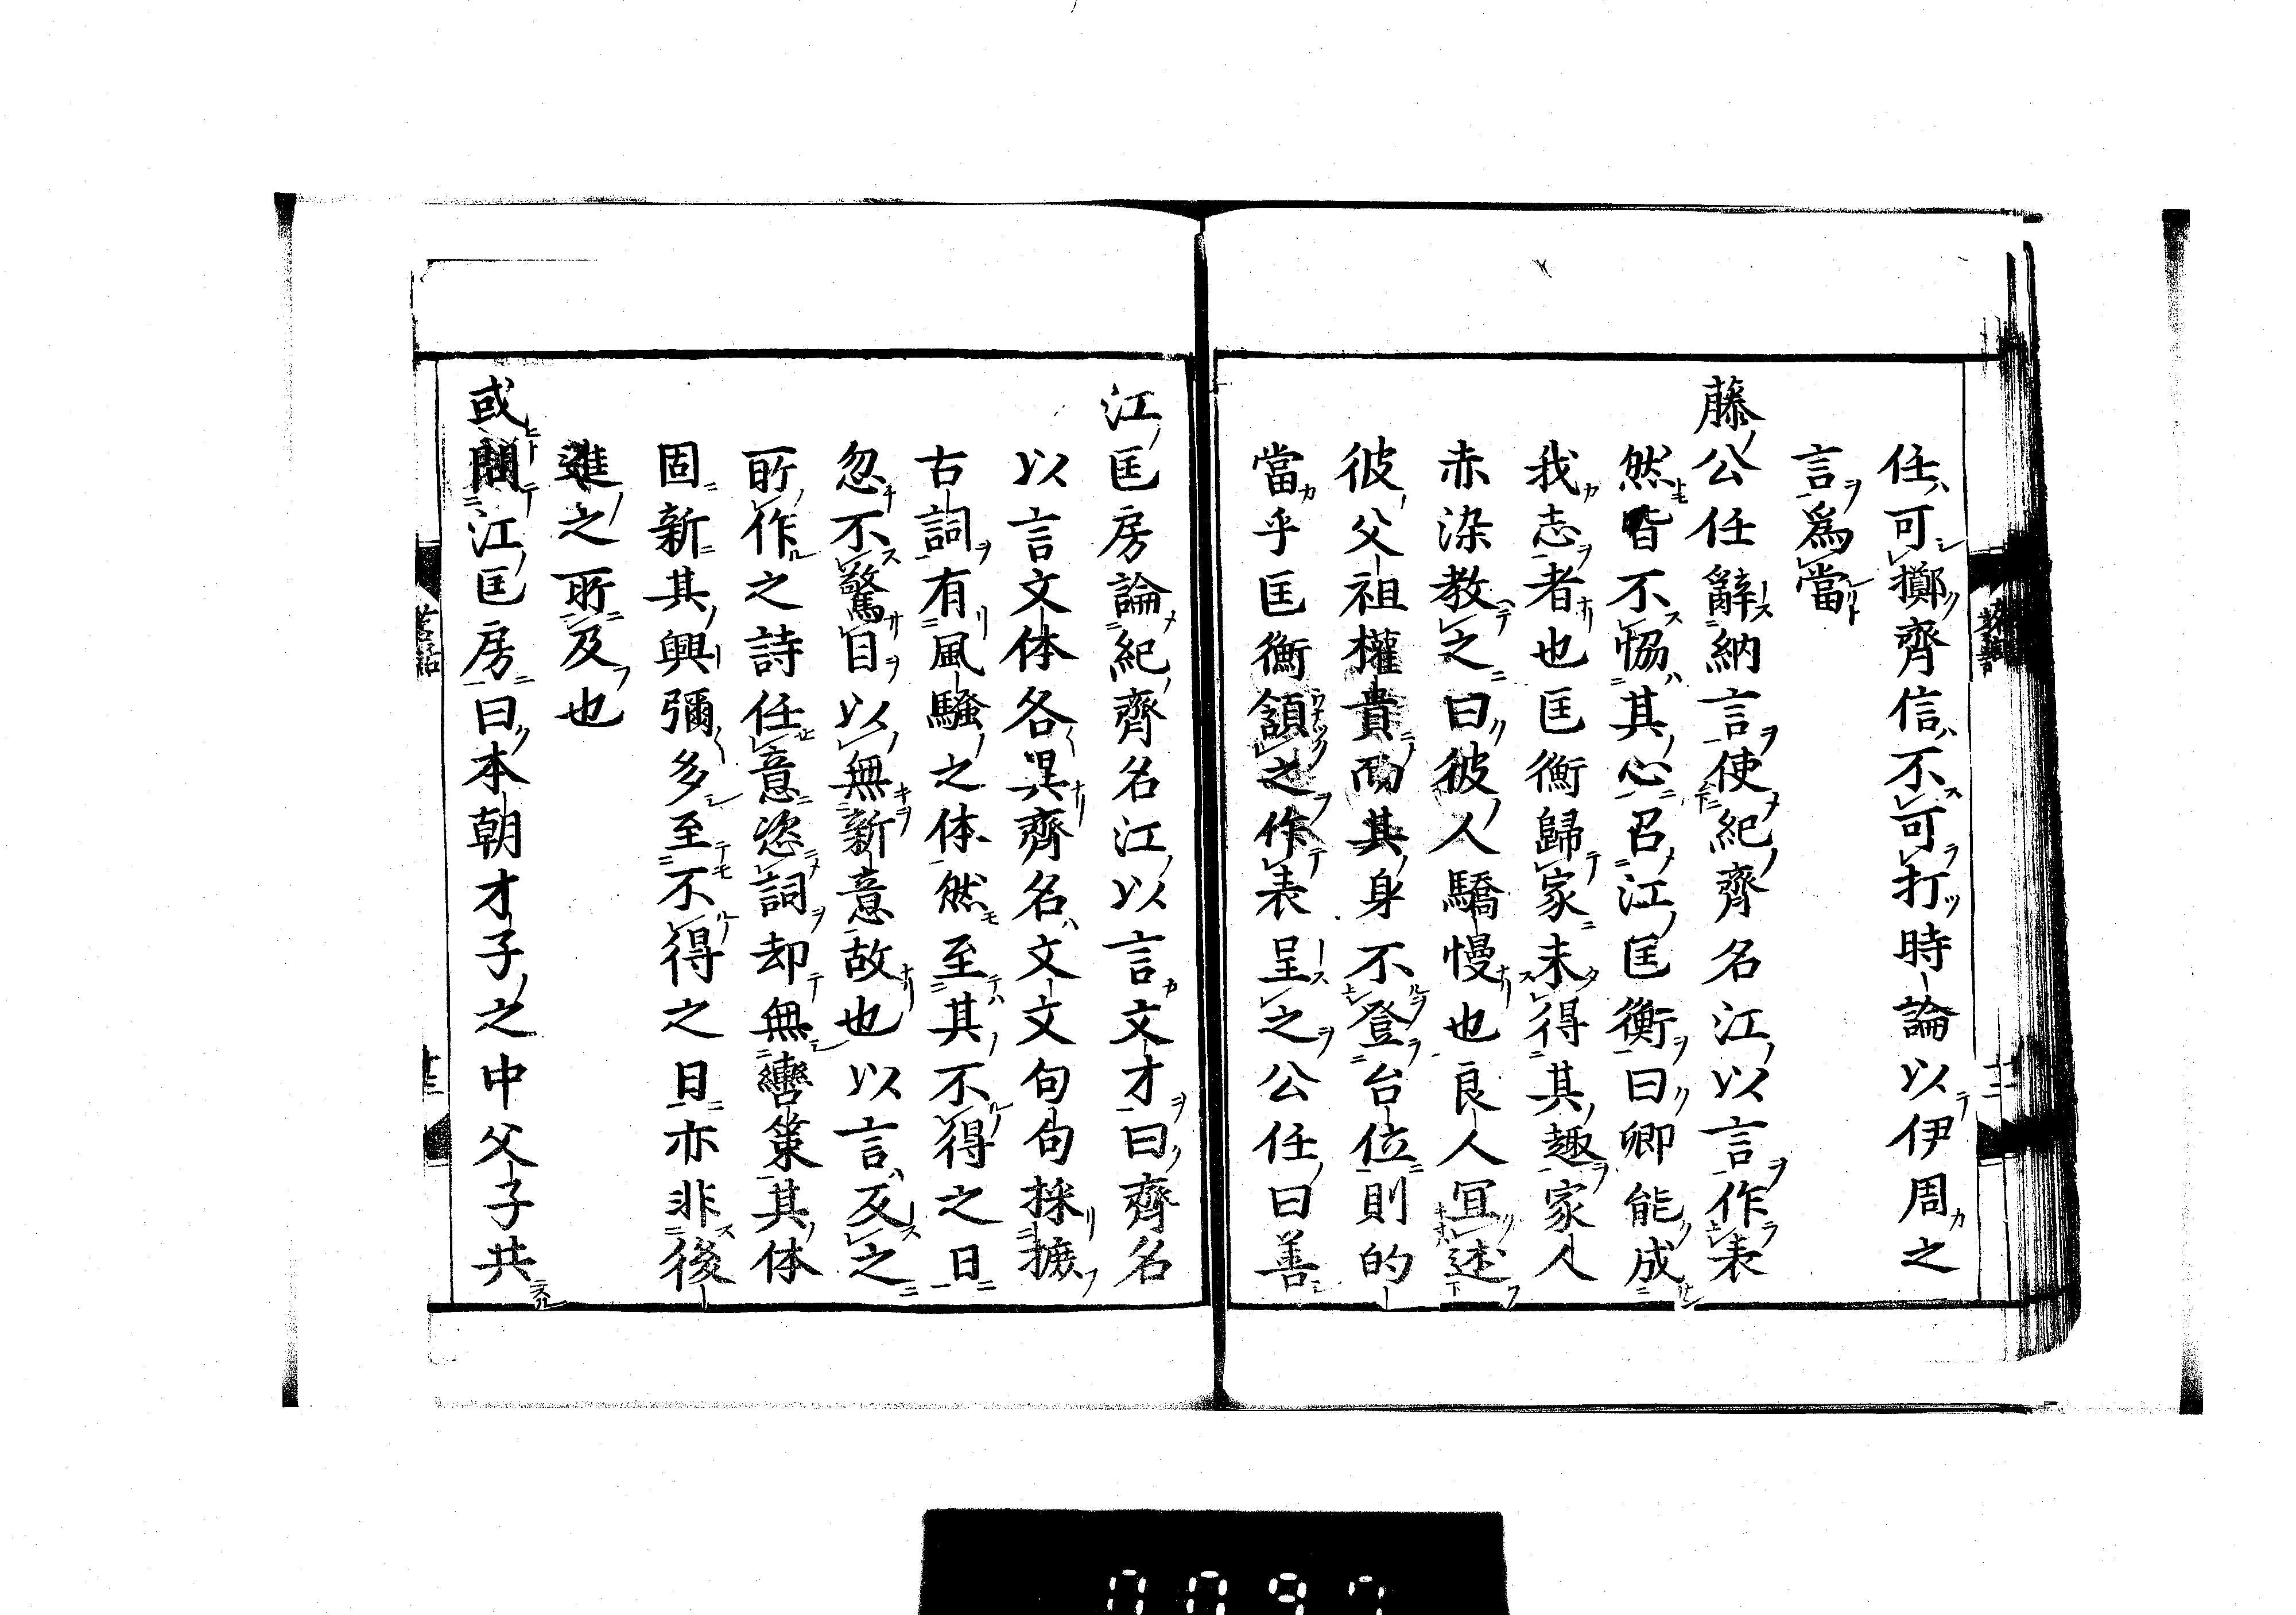 任可擲齊信不可打時論以伊周之
言爲當
藤公任辭納言使紀齊名江以言作表
然皆不恊其心召江匡衡曰卿能成
我志者也匡衡歸家未得其趣家人
赤染教之曰彼人驕慢也良人冝述
彼父祖權貴而其身不登台位則的
當乎匡衡頷之作表呈之公任曰善
江匡房論紀齊名江以言文才曰齊名
以言文体各異齊名文文句句採摭
古詞有風騷之体然至其不得之日
忽不驚目以無新意故也以言反之
所作之詩任意恣詞却無轡策其体
固新其興彌多至不得之日亦非後
進之所及也
或問江匡房曰本朝才子之中父子共
十三
0097